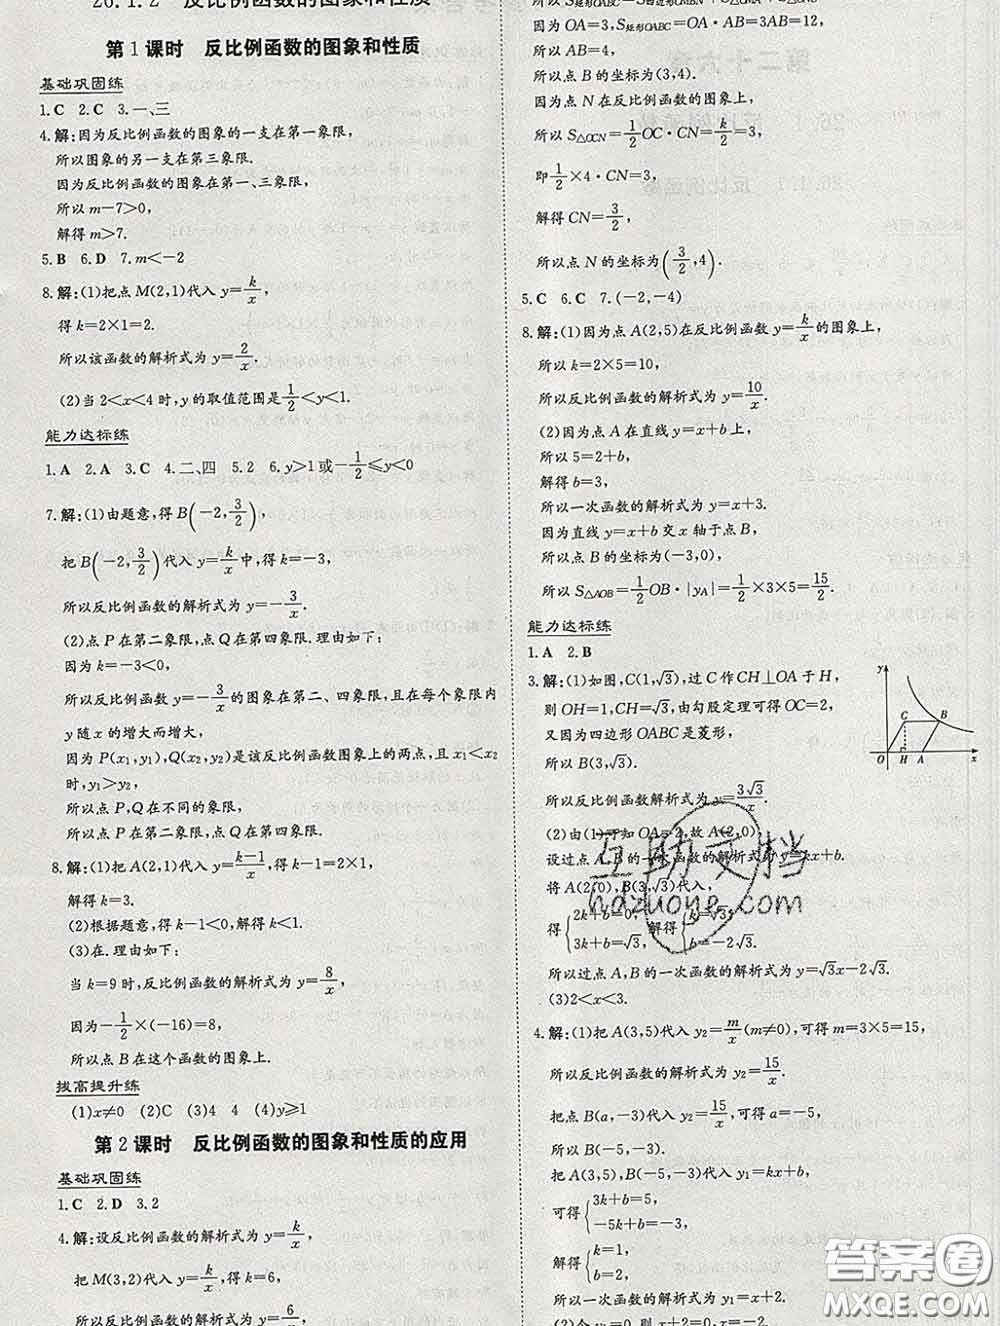 26.1.2 反比例函数的图象和性质
第1课时 反比例函数的图象和性质
基础巩固练
1.C 2.C 3.一、三
4.解:因为反比例函数的图象的一支在第一象限,
所以图象的另一支在第三象限.
因为反比例函数的图象在第一、三象限,
所以 m-7>0,
解得 m>7.
5.B 6.D 7.m<-2
8.解:(1)把点 M(2,1)代入 y=k/x,
得 k=2×1=2.
所以该函数的解析式为 y=2/x.
(2)当 2<x<4 时,y 的取值范围是 1/2<y<1.
能力达标练
1.A 2.A 3.C 4.二、四 5.2 6.y>1或-1/2≤y<0
7.解:(1)由题意,得 B(-2,3/2),
把 B(-2,3/2)代入 y=k/x中,得 k=-3,
所以反比例函数的解析式为 y=-3/x.
(2)点 P 在第二象限,点 Q 在第四象限.理由如下:
因为 k=-3<0,
所以反比例函数 y=-3/x的图象在第二、四象限,且在每个象限内
y 随 x 的增大而增大,
因为 P(x₁,y₁),Q(x₂,y₂)是该反比例函数图象上的两点,且 x₁<x₂
时,y₁>y₂,
所以点 P,Q 在不同的象限,
所以点 P 在第二象限,点 Q 在第四象限.
8.解:(1)把 A(2,1)代入 y=(k-1)/x,得 k-1=2×1,
解得 k=3.
(2)根据题意,得 k-1<0,解得 k<1.
(3)在.理由如下:
当 k=9 时,反比例函数的解析式为 y=8/x,
因为-1/2×(-16)=8,
所以点 B 在这个函数的图象上.
拔高提升练
(1)x≠0 (2)C (3)4 4 (4)y≥1
第2课时 反比例函数的图象和性质的应用
基础巩固练
1.C 2.D 3.2
4.解:设反比例函数的解析式为 y=k/x,
把 M(3,2)代入 y=k/x,得 k=6,
所以反比例函数的解析式为 y=6/x
因为 OA=3,S矩形OABC
所以 AB=4.
所以点 B 的坐标为(3,4).
因为点 N 在反比例函数的图象上,
所以 S△OCN=1/2OC·CN=k/2=3,
即1/2×4·CN=3,
解得 CN=3/2,
所以点 N 的坐标为(3/2,4).
5.C 6.C 7.(-2,-4)
8.解:(1)因为点 A(2,5)在反比例函数 y=k/x的图象上,
所以 k=2×5=10,
所以反比例函数的解析式为 y=10/x.
(2)因为点 A 在直线 y=x+b 上,
所以 5=2+b,
解得 b=3,
所以一次函数的解析式为 y=x+3.
因为直线 y=x+b 交 x 轴于点 B,
所以点 B 的坐标为(-3,0),
所以 S△AOB=1/2OB·|yA|=1/2×3×5=15/2.
能力达标练
1.A 2.B
3.解:(1)如图,C(1,√3),过 C 作 CH⊥OA 于 H,
则 OH=1,CH=√3,由勾股定理可得 OC=2,
又因为四边形 OABC 是菱形,
所以 B(3,√3).
所以反比例函数解析式为 y=3√3/x.
(2)由(1)可知 OA=2,故 A(2,0)
设过点 A,B 的一次函数的解析式为 y=kx+b.
将 A(2,0),B(3,√3)代入,
得{2k+b=0, 3k+b=√3, 解得{k=√3, b=-2√3.
所以过点 A,B 的一次函数的解析式为 y=√3x-2√3.
(3)2<x<3.
y C B O H A x
4.解:(1)把 A(3,5)代入 y₂=m/x(m≠0),可得 m=3×5=15,
所以反比例函数的解析式为 y₂=15/x.
把点 B(a,-3)代入 y₂=15/x,可得 a=-5,
所以 B(-5,-3).
把 A(3,5),B(-5,-3)代入 y₁=kx+b,
可得{3k+b=5, -5k+b=-3,
解得{k=1, b=2.
所以一次函数的解析式为 y₁=x+2.
(2)令 x=0
互助文档
hdzuoye.com
答案圈
MXQE.COM